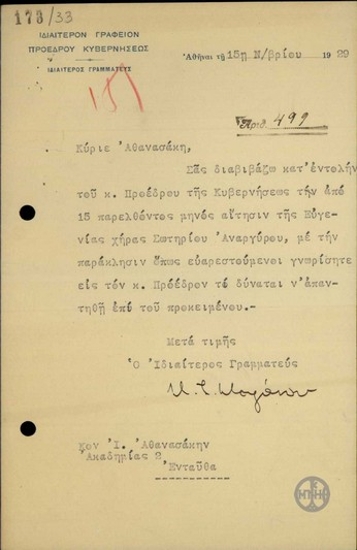 173/33
ΙΔΙΑΙΤΕΡΟΝ ΓΡΑΦΕΙΟΝ
ΠΡΟΕΔΡΟΥ ΚΥΒΕΡΝΗΣΕΩΣ
ΙΔΙΑΙΤΕΡΟΣ ΓΡΑΜΜΑΤΕΥΣ
Ἀθῆναι τῇ 15ῃ Ν/βρίου 1929
Ἀριθ. 499
Κύριε Ἀθανασάκη,
Σᾶς διαβιβάζω κατ' ἐντολήν
τοῦ κ. Προέδρου τῆς Κυβερνήσεως τήν ἀπό
15 παρελθόντος μηνός αἴτησιν τῆς Εὐγε-
νίας χήρας Σωτηρίου Ἀναργύρου, μέ τήν
παράκλησιν ὅπως εὐαρεστούμενοι γνωρίσητε
εἰς τόν κ. Πρόεδρον τί δύναται ν' ἀπαν-
τηθῇ ἐπί τοῦ προκειμένου.-
Μετά τιμῆς
Ὁ Ἰδιαίτερος Γραμματεύς
Κον Ἰ. Ἀθανασάκην
Ἀκαδημίας 2
Ἐνταῦθα